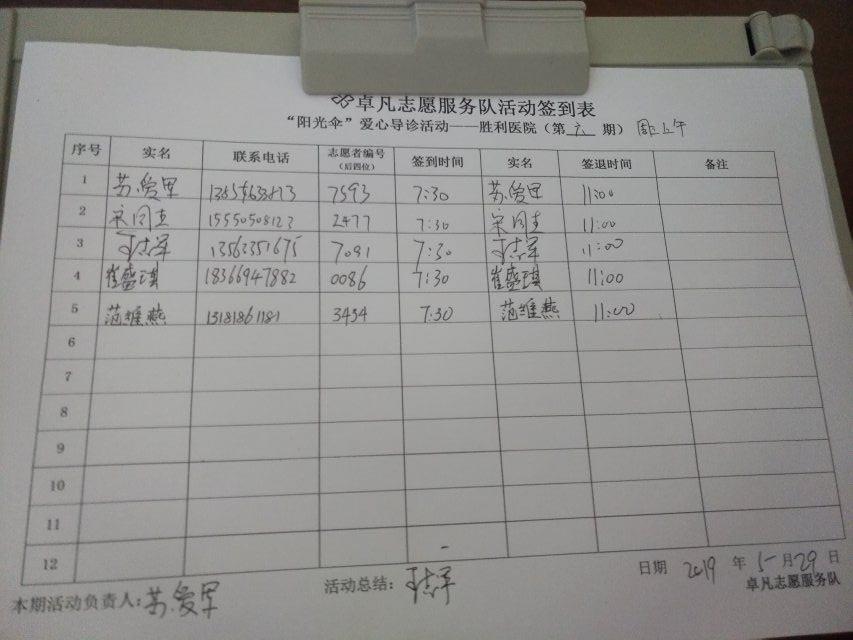 卓凡志愿服务队活动签到表
“阳光伞”爱心导诊活动——胜利医院（第 六 期） 周三上午
序号 实名 联系电话 志愿者编号（后四位） 签到时间 实名 签退时间 备注
1 苏爱军 7593 7:30 苏爱军 11:00
2 宋同圭 15550508123 2477 7:30 宋同圭 11:00
3 于志军 13562351675 7091 7:30 于志军 11:00
4 崔盛琪 18366947882 0086 7:30 崔盛琪 11:00
5 范维燕 13181861181 3454 7:30 范维燕 11:00
6
7
8
9
10
11
12
本期活动负责人:苏爱军 活动总结: 于志军 日期 2019 年 5 月 29 日
卓凡志愿服务队